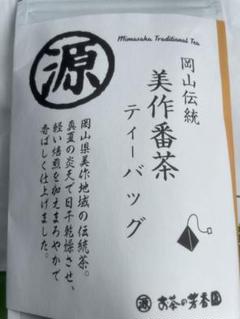 Mimasaka Traditional Tea
源
岡山伝統
美作番茶
ティーバッグ
岡山県美作地域の伝統茶。
真夏の炎天で日干乾燥させ、
軽い焙煎を加えまろやかで
香ばしく仕上げました。
源 お茶の芳香園